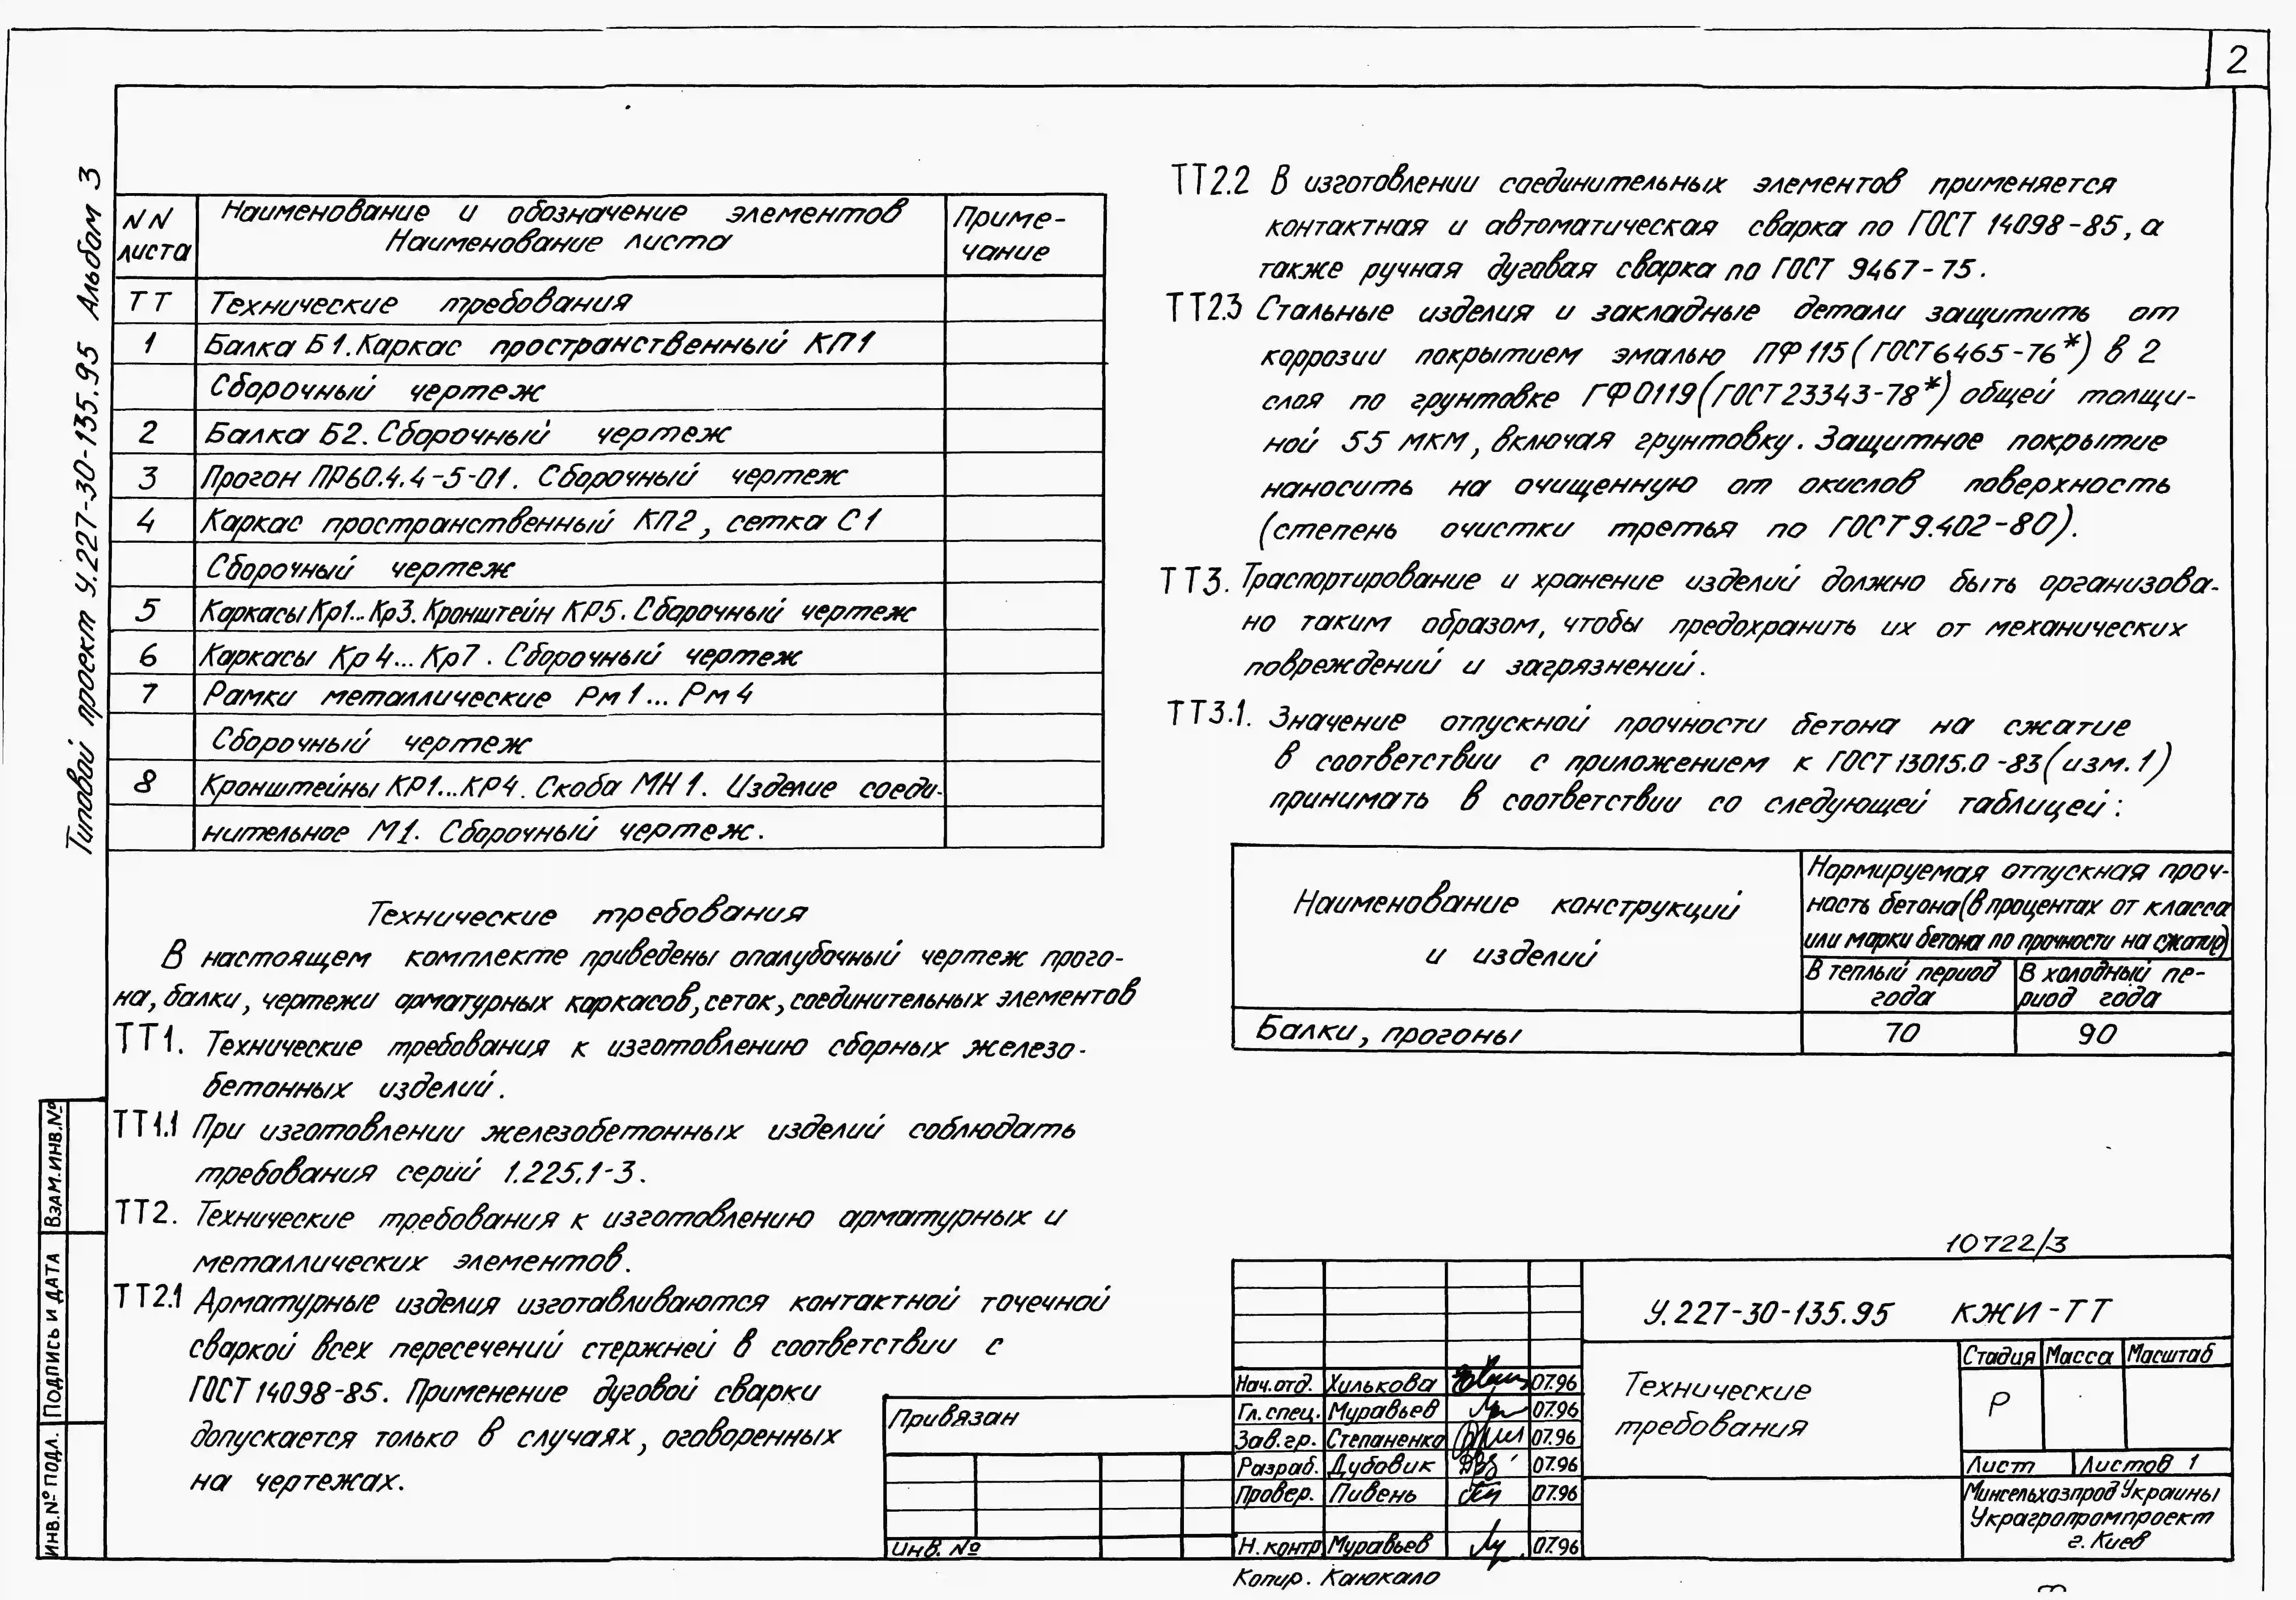 2
Типовой проект У.227-30-135.95 Альбом 3
NN листа
Наименование и обозначение элементов
Наименование листа
Приме-
чание
ТТ Технические требования
1 Балка Б1. Каркас пространственный КП1
Сборочный чертеж
2 Балка Б2. Сборочный чертеж
3 Прогон ПР60.4.4-5-01. Сборочный чертеж
4 Каркас пространственный КП2, сетка С1
Сборочный чертеж
5 Каркасы Кр1...Кр3. Кронштейн КР5. Сборочный чертеж
6 Каркасы Кр4...Кр7. Сборочный чертеж
7 Рамки металлические Рм1...Рм4
Сборочный чертеж
8 Кронштейны КР1...КР4. Скоба МН1. Изделие соеди-
нительное М1. Сборочный чертеж.
Технические требования
В настоящем комплекте приведены опалубочный чертеж прого-
на, балки, чертежи арматурных каркасов, сеток, соединительных элементов
ТТ1. Технические требования к изготовлению сборных железо-
бетонных изделий.
ТТ1.1 При изготовлении железобетонных изделий соблюдать
требования серий 1.225.1-3.
ТТ2. Технические требования к изготовлению арматурных и
металлических элементов.
ТТ2.1 Арматурные изделия изготавливаются контактной точечной
сваркой всех пересечений стержней в соответствии с
ГОСТ 14098-85. Применение дуговой сварки
допускается только в случаях, оговоренных
на чертежах.
ТТ2.2 В изготовлении соединительных элементов применяется
контактная и автоматическая сварка по ГОСТ 14098-85, а
также ручная дуговая сварка по ГОСТ 9467-75.
ТТ2.3 Стальные изделия и закладные детали защитить от
коррозии покрытием эмалью ПФ115 (ГОСТ6465-76*) в 2
слоя по грунтовке ГФ0119 (ГОСТ23343-78*) общей толщи-
ной 55 мкм, включая грунтовку. Защитное покрытие
наносить на очищенную от окислов поверхность
(степень очистки третья по ГОСТ9.402-80).
ТТ3. Траспортирование и хранение изделий должно быть организова-
но таким образом, чтобы предохранить их от механических
повреждений и загрязнений.
ТТ3.1. Значение отпускной прочности бетона на сжатие
в соответствии с приложением к ГОСТ 13015.0-83 (изм.1)
принимать в соответствии со следующей таблицей:
Наименование конструкций
и изделий
Нормируемая отпускная проч-
ность бетона (в процентах от класса
или марки бетона по прочности на сжатие)
В теплый период
года
В холодный пе-
риод года
Балки, прогоны 70 90
10722/3
У.227-30-135.95 КЖИ-ТТ
Технические
требования
Стадия Масса Масштаб
Р
Лист Листов 1
Минсельхозпрод Украины
Украгропромпроект
г. Киев
Нач.отд. Хулькова 07.96
Гл.спец. Муравьев 07.96
Зав.гр. Степаненко 07.96
Разраб. Дубовик 07.96
Провер. Пивень 07.96
Н.контр Муравьев 07.96
Привязан
Инв. №
Копир. Каюкало
Взам.инв.№
Подпись и дата
Инв.№ подл.